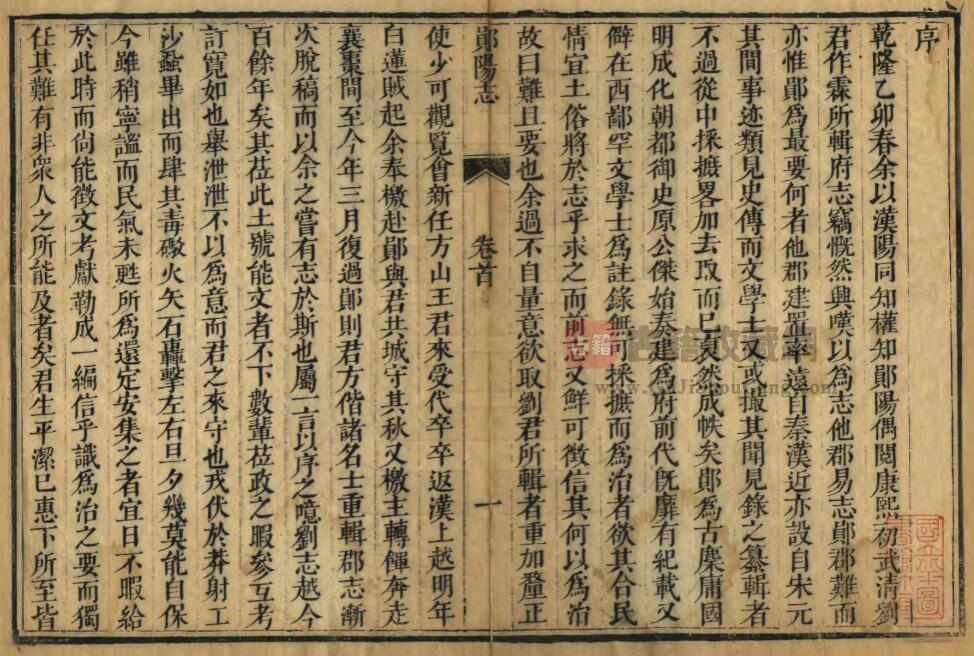 序
乾隆乙卯春余以漢陽同知權知鄖陽偶閱康熙初武清劉
君作霖所輯府志竊慨然興嘆以爲志他郡易志鄖郡難而
亦惟鄖爲最要何者他郡建置率遠自秦漢近亦設自宋元
其間事迹類見史傳而文學士又或撮其聞見錄之纂輯者
不過從中採摭畧加去取而已裒然成帙矣鄖爲古麇庸國
明成化朝都御史原公傑始奏建爲府前代旣靡有紀載又
僻在西鄙罕文學士爲註錄無可採摭而爲治者欲其合民
情宜土俗將於志乎求之而前志又鮮可徵信其何以爲治
故曰難且要也余過不自量意欲取劉君所輯者重加釐正
鄖陽志
卷首
一
使少可觀覽會新任方山王君來受代卒卒返漢上越明年
白蓮賊起余奉檄赴鄖與君共城守其秋又檄主轉餫奔走
襄棗間至今年三月復過鄖則君方偕諸名士重輯郡志漸
次脫稿而以余之嘗有志於斯也屬一言以序之噫劉志越今
百餘年矣其莅此土號能文者不下數輩莅政之暇參互考
訂寛如也舉泄泄不以爲意而君之來守也戎伏於莽射工
沙蝨畢出而肆其毒礮火矢石轟擊左右旦夕幾莫能自保
今雖稍寧謐而民氣未甦所爲還定安集之者宜日不暇給
於此時而尙能徵文考獻勒成一編信乎識爲治之要而獨
任其難有非衆人之所能及者矣君生平潔已惠下所至皆
古籍收藏網